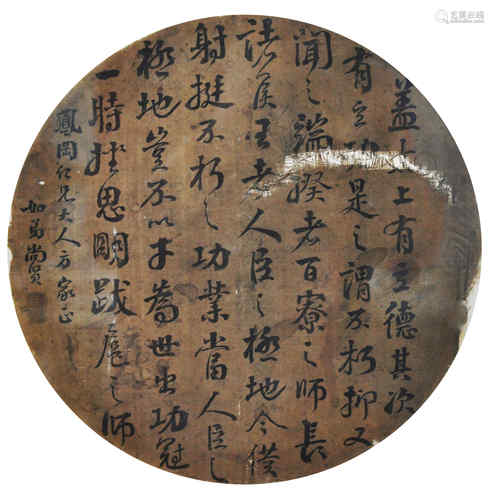 蓋太上有立德其次
有立功是之謂不朽抑又
聞之端揆者百寮之師長
諸侯王者人臣之極地今僕
射挺不朽之功業當人臣之
極地豈不以才為世出功冠
一時挫思明跋扈之師
鳳岡仁兄大人方家正
如弟尚賢